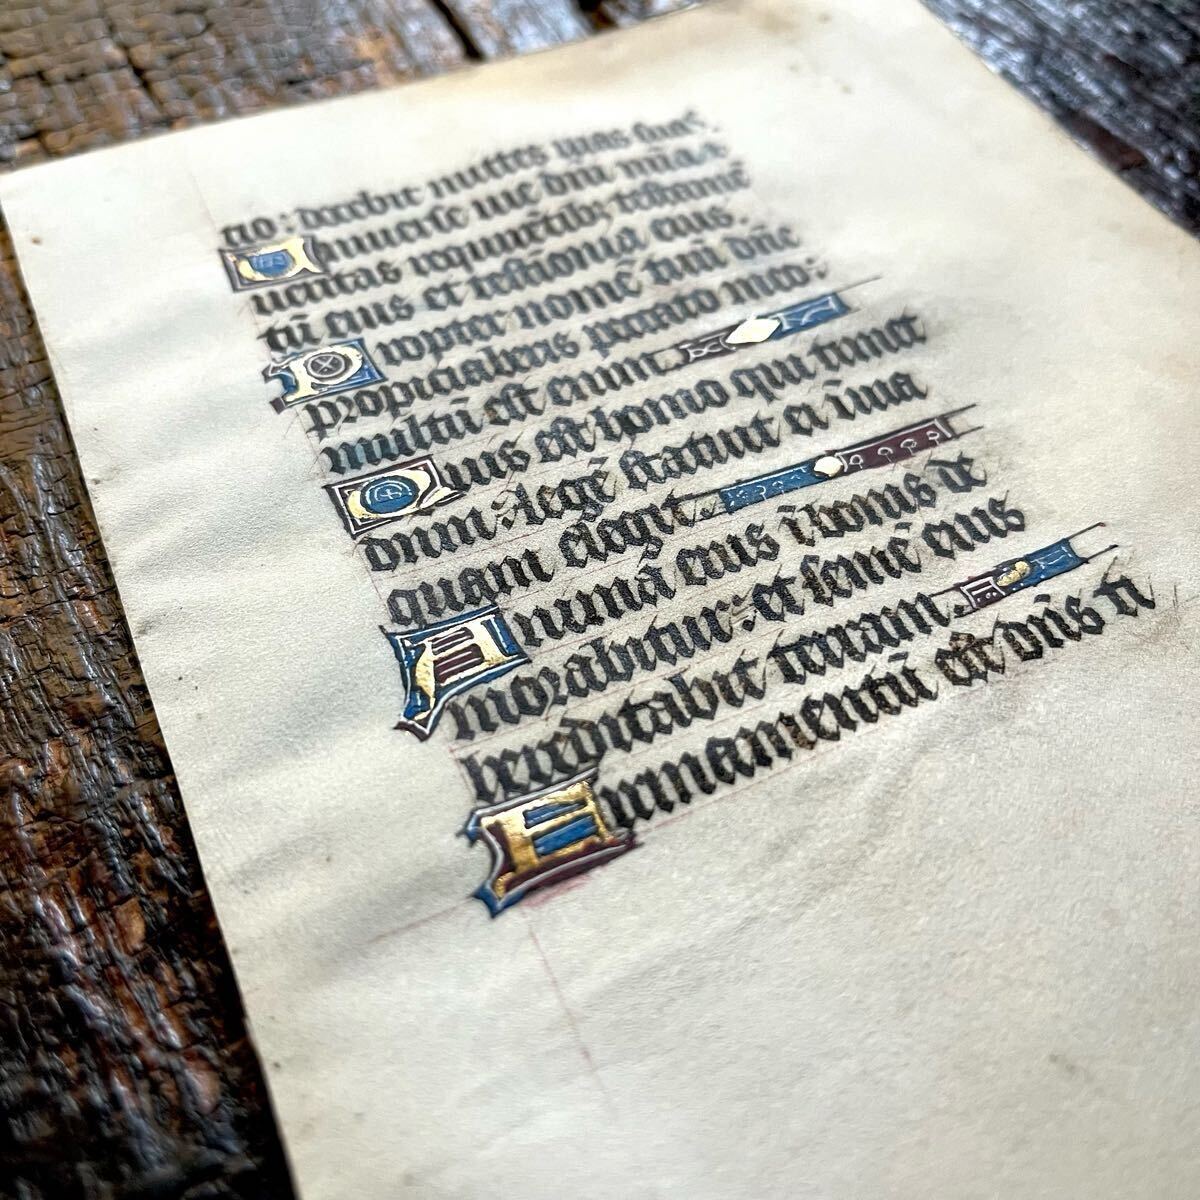 tio : docebit mittes vias suas
Uniuerse uie dñi mĩa ⁊
ueritas requirẽtibꝫ testamẽ
tũ eius et testimonia eius .
Propter nomẽ tuũ dñe
propiciaberis peccato meo :
multũ est enim .
Quis est homo qui timet
dnm : legẽ statuit ei ĩ uia
quam elegit .
Anima eius ĩ bonis de
morabitur : et semẽ eius
hereditabit terram .
Firmamentũ est dñs ti